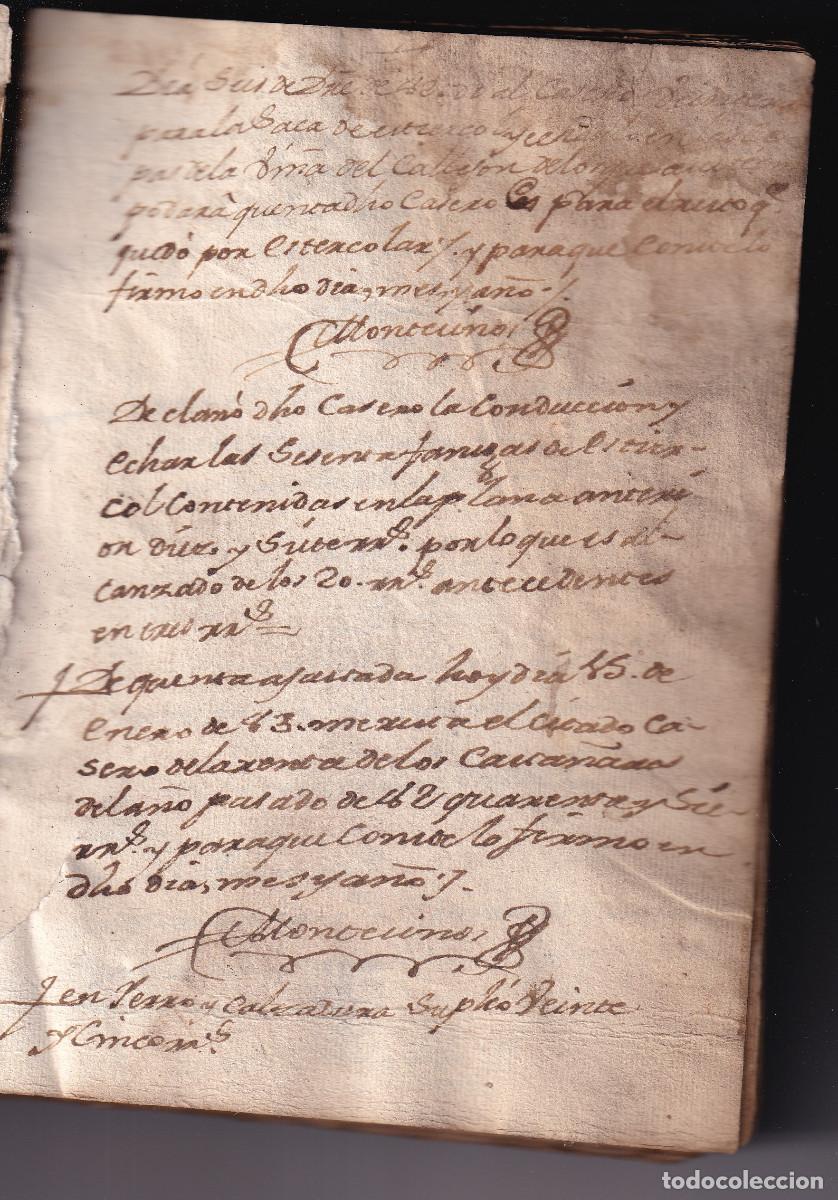 Dia Seis de Dre de 42. di al Casero Veinte rr
para la Saca de estiercol y
pas de la Viña del Callejon de lo que
podara quenta dho Casero es para el resto qe
quedó por estercolar /. y para que Conste lo
firmo en dho dia, mes, y año. /.
Montesinos
Declaró dho Casero la Conducción y
echar las Sesenta fanegas de estier-
col Contenidas en la plana anteri
or diez, y Siete rrs. por lo que es al-
canzado de los 20. rrs. antecedentes
en tres rrs =
De quenta ajustada hoy dia 15. de
enero de 43. me resta el citado Ca-
sero de la renta de los Castañares
del año pasado de 42 quarenta y Sie-
rrs. y para que Conste lo firmo en
dho dia, mes, y año. /.
Montesinos
en Yerro y Calzadura Suplió Veinte
y Cinco rrs.
todocoleccion